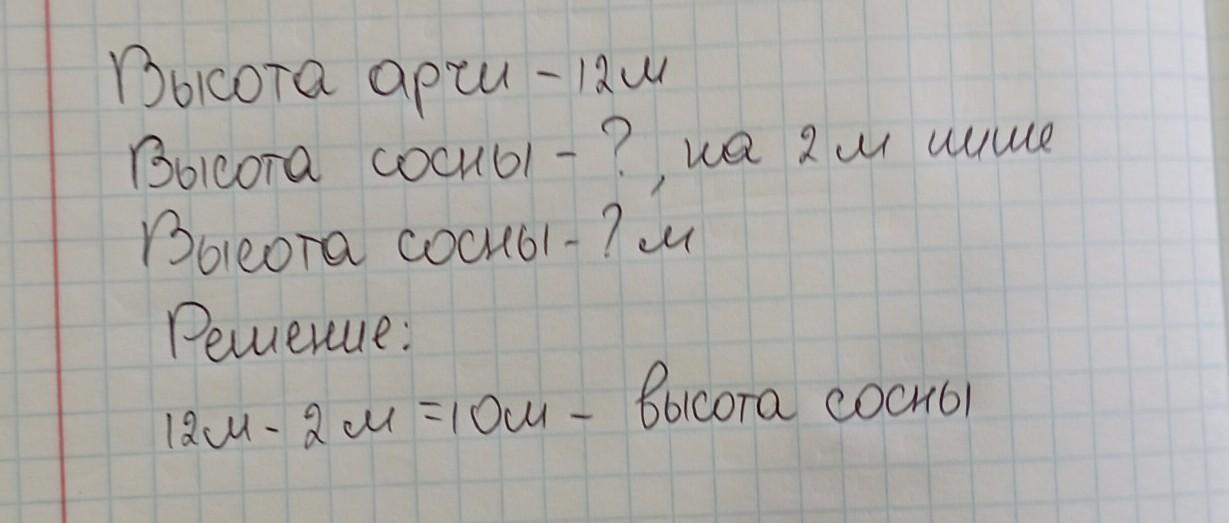 Высота арчи - 12 м
Высота сосны - ?, на 2 м ниже
Высота сосны - ? м
Решение:
12м - 2 м = 10м - высота сосны